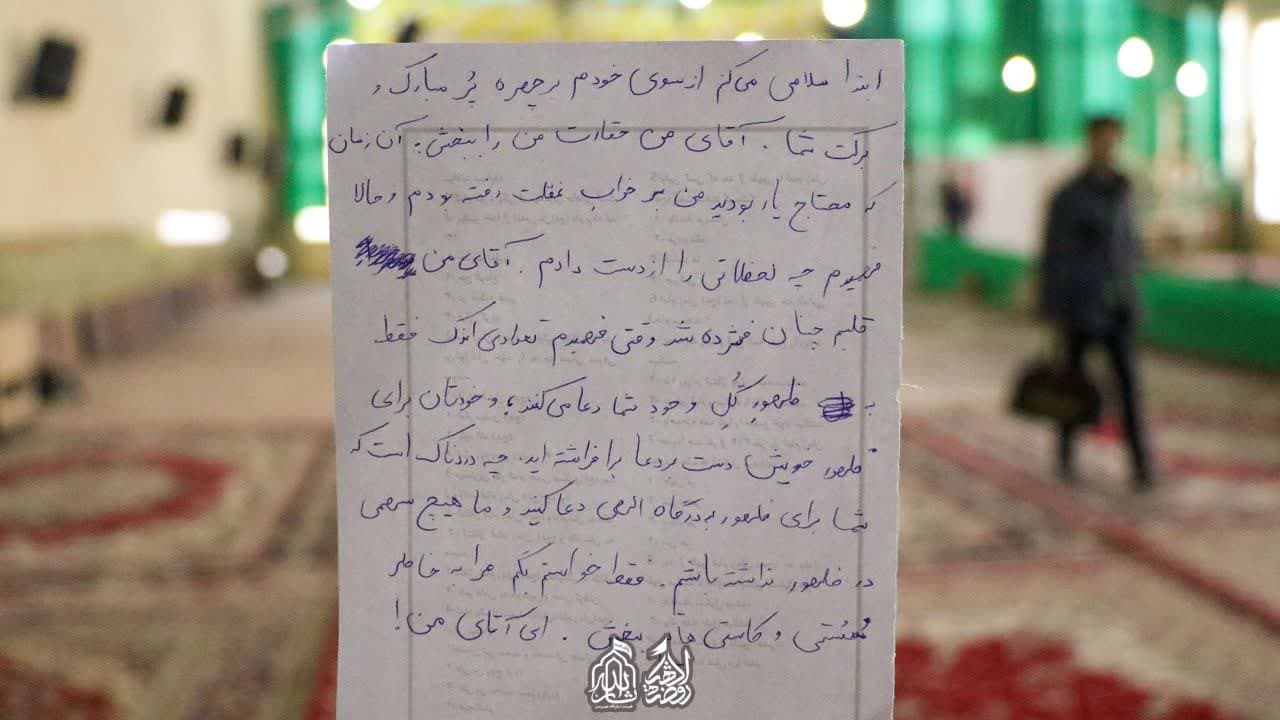 ابتدا سلامی می‌کنم از سوی خودم بر چهره پُر مبارک و
برکت شما . آقای من حقارت من را ببخش . آن زمان
که محتاج یار بودید من بر خواب غفلت رفته بودم و حالا
فهمیدم چه لحظاتی را از دست دادم . آقای من
قلبم چنان فشرده شد وقتی فهمیدم تعدادی اندک فقط
به ظهورِ گُلِ وجود شما دعا می‌کنند ، و خودتان برای
ظهور خویش دست بر دعا برافراشته اید . چه دردناک است که
شما برای ظهور به درگاه الهی دعا کنید و ما هیچ سهمی
در ظهور نداشته باشم . فقط خواستم بگم مرا به خاطر
سُستی و کاستی هایم ببخش . ای آقای من !